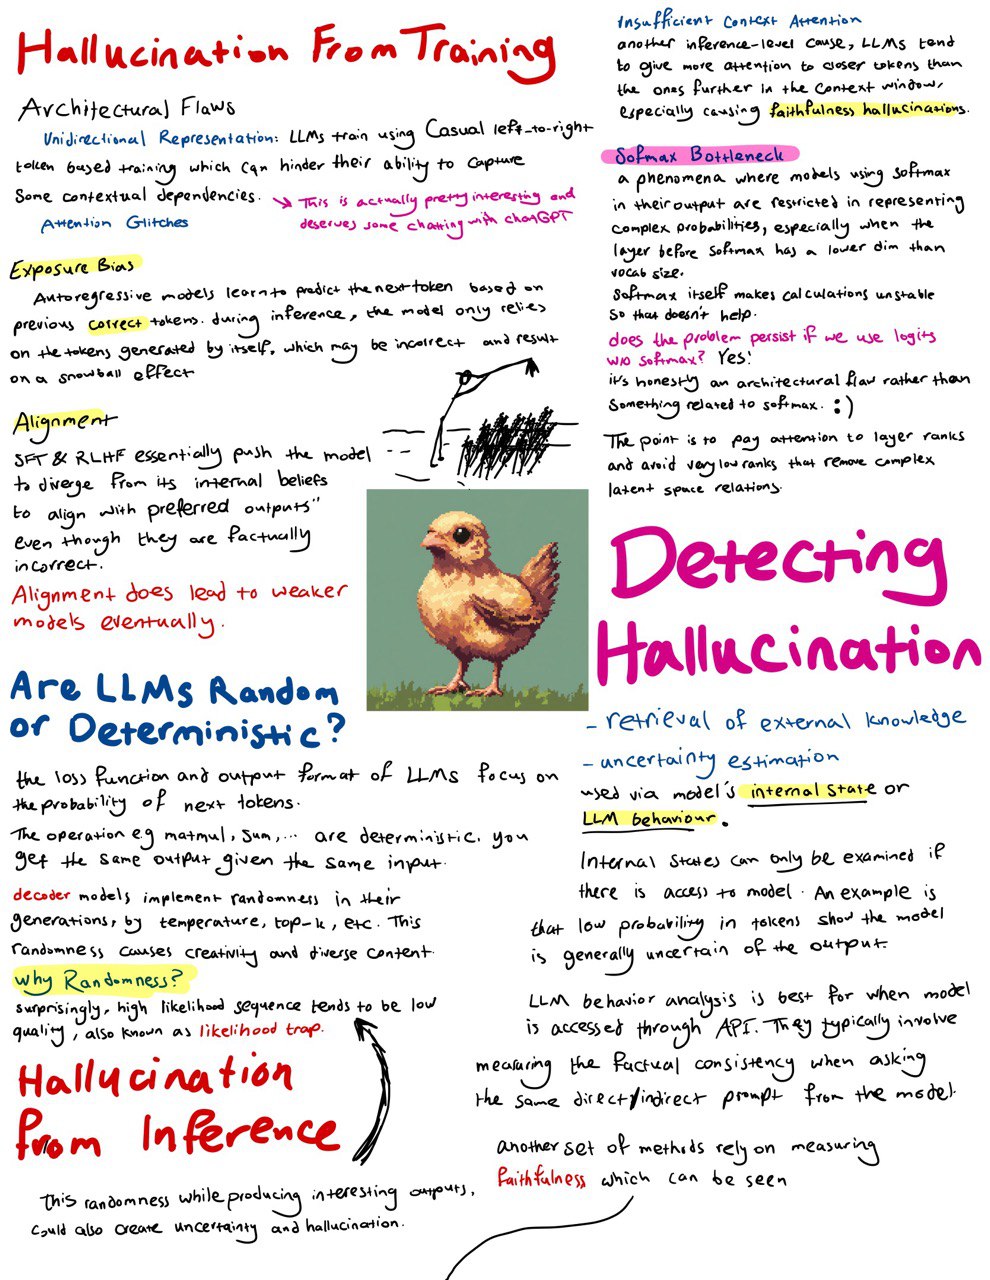 Hallucination From Training
Architectural Flaws
Unidirectional Representation: LLMs train using Casual left-to-right
token based training which can hinder their ability to capture
some contextual dependencies. ↘ This is actually pretty interesting and
deserves some chatting with chatGPT
Attention Glitches
Exposure Bias
Autoregressive models learn to predict the next token based on
previous correct tokens. during inference, the model only relies
on the tokens generated by itself, which may be incorrect and result
on a snowball effect
Alignment
SFT & RLHF essentially push the model
to diverge from its internal beliefs
to align with preferred outputs"
even though they are factually
incorrect.
Alignment does lead to weaker
models eventually.
Are LLMs Random
or Deterministic?
the loss function and output format of LLMs focus on
the probability of next tokens.
The operation e.g matmul, sum,... are deterministic. you
get the same output given the same input.
decoder models implement randomness in their
generations, by temperature, top-k, etc. This
randomness causes creativity and diverse content.
why Randomness?
surprisingly, high likelihood sequence tends to be low
quality, also known as likelihood trap.
Hallucination
from Inference
This randomness while producing interesting outputs,
could also create uncertainty and hallucination.
Insufficient Context Attention
another inference-level cause, LLMs tend
to give more attention to closer tokens than
the ones further in the context window,
especially causing faithfulness hallucinations.
Sofmax Bottleneck
a phenomena where models using softmax
in their output are restricted in representing
complex probabilities, especially when the
layer before softmax has a lower dim than
vocab size.
Softmax itself makes calculations unstable
so that doesn't help.
does the problem persist if we use logits
w/o softmax? Yes!
it's honestly an architectural flaw rather than
something related to softmax. :)
The point is to pay attention to layer ranks
and avoid very low ranks that remove complex
latent space relations.
Detecting
Hallucination
- retrieval of external knowledge
- uncertainty estimation
used via model's internal state or
LLM behaviour.
Internal states can only be examined if
there is access to model. An example is
that low probability in tokens show the model
is generally uncertain of the output.
LLM behavior analysis is best for when model
is accessed through API. They typically involve
measuring the factual consistency when asking
the same direct/indirect prompt from the model.
another set of methods rely on measuring
faithfulness which can be seen